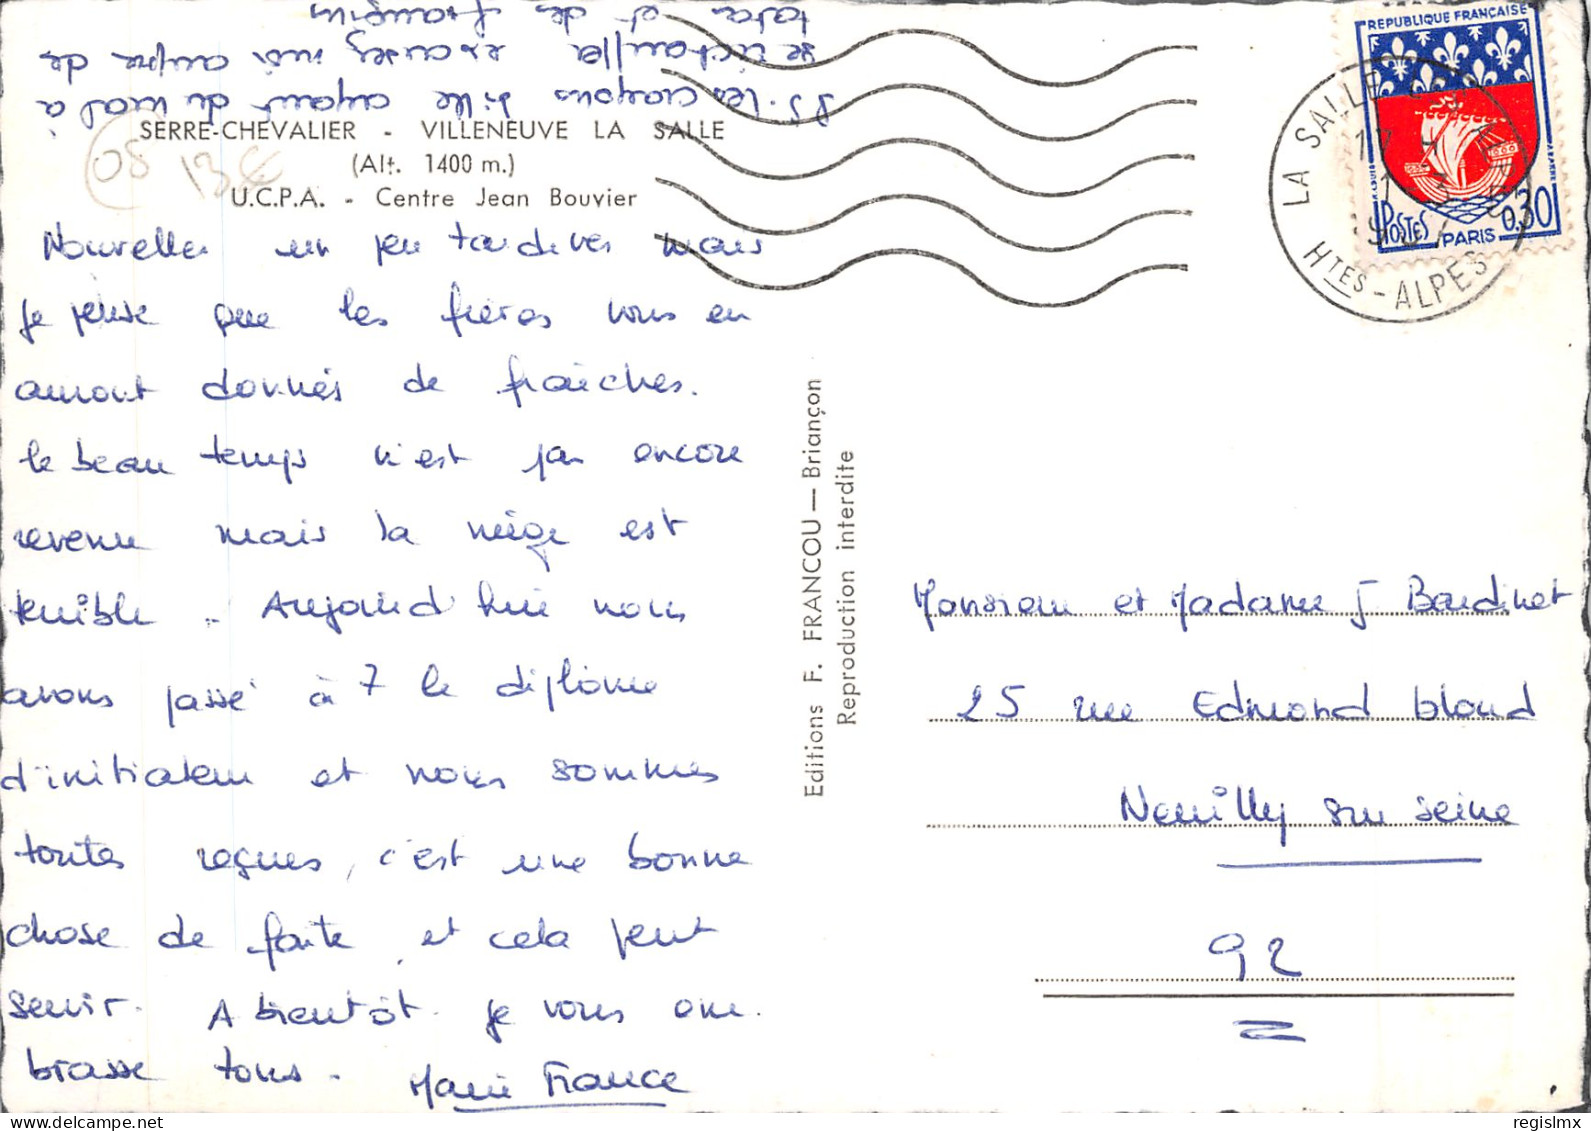 PS. Les crayons bille ayant du mal à
se réchauffer excusez moi auprès de
tata et des frangins
SERRE-CHEVALIER - VILLENEUVE LA SALLE
(Alt. 1400 m.)
U.C.P.A. - Centre Jean Bouvier
05 13€
Nouvelles un peu tardives mais
je pense que les frères vous en
auront donnés de fraiches.
le beau temps n'est pas encore
revenu mais la neige est
terrible. Aujourd'hui nous
avons passé à 7 le diplome
d'initiateur et nous sommes
toutes reçues, c'est une bonne
chose de faite, et cela peut
servir. A bientôt. je vous em
brasse tous. Marie France
Editions F. FRANCOU — Briançon
Reproduction interdite
REPUBLIQUE FRANÇAISE
POSTES PARIS 0,30
LA SALLE
HTES-ALPES
Monsieur et Madame J Bardinet
25 rue Edmond bloud
Neuilly sur seine
92
regislmx